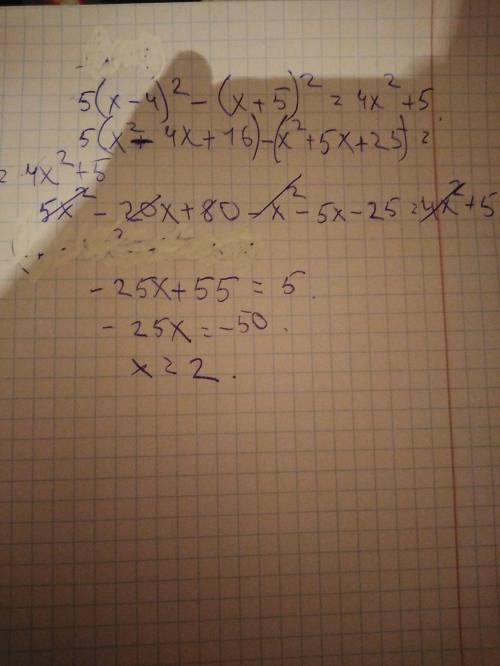 5(x-4)² - (x+5)² = 4x²+5.
5(x²-4x+16)-(x²+5x+25) =
= 4x²+5
5x² - 20x+80-x²-5x-25=4x²+5
-25x+55 = 5.
-25x=-50.
x=2.